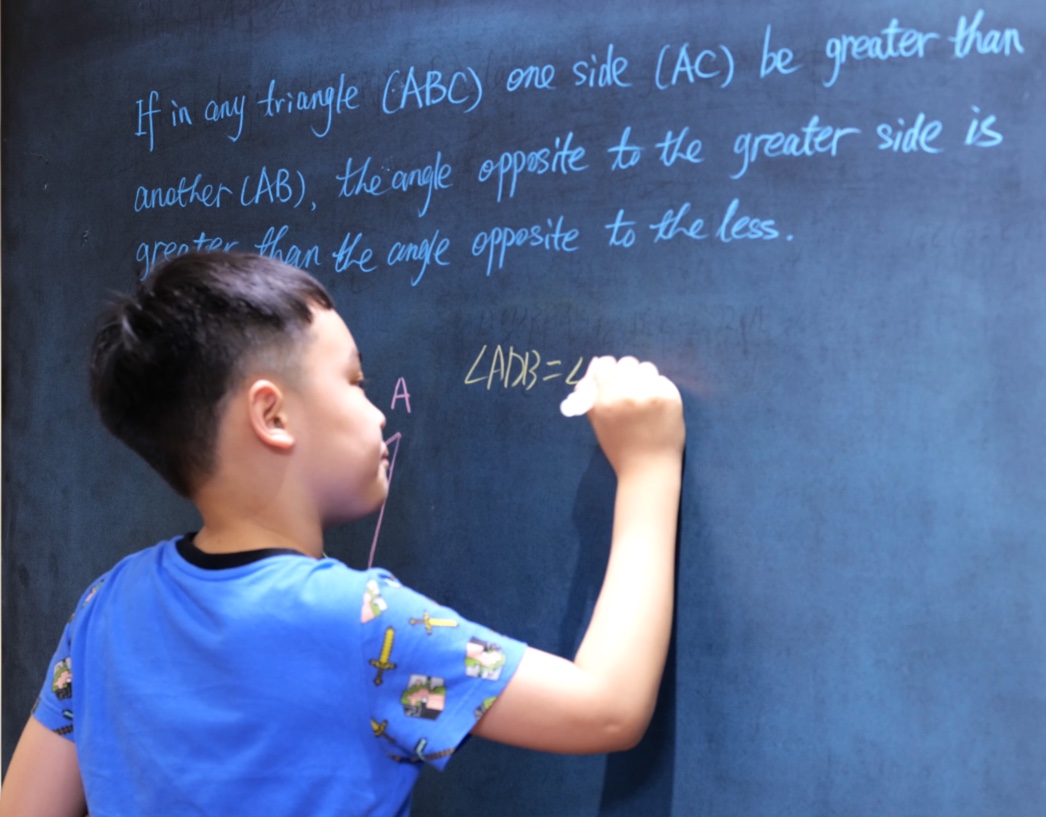 If in any triangle (ABC) one side (AC) be greater than
another (AB), the angle opposite to the greater side is
greater than the angle opposite to the less.
∠ADB=∠
A